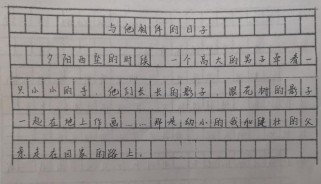 与他相伴的日子
夕阳西坠的时段，一个高大的男子牵着一
只小小的手，他们长长的影子，跟花树的影子
一起在地上作画……那是幼小的我和健壮的父
亲走在回家的路上。